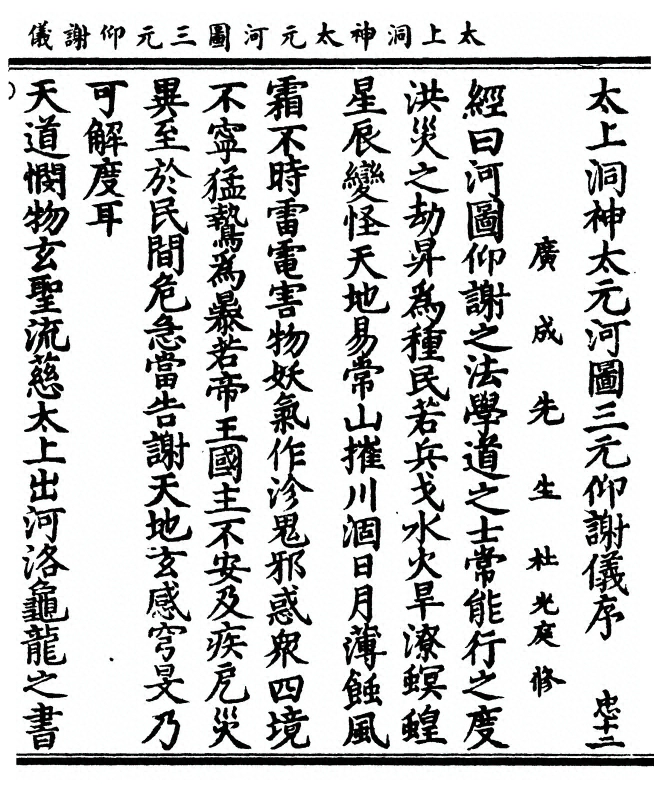 太上洞神太元河圖三元仰謝儀
太上洞神太元河圖三元仰謝儀序 忠十二
廣成先生杜光庭修
經曰河圖仰謝之法學道之士常能行之度
洪災之劫昇為種民若兵戈水火旱潦螟蝗
星辰變怪天地易常山摧川涸日月薄蝕風
霜不時雷電害物妖氣作沴鬼邪惑衆四境
不寧猛鷙為暴若帝王國主不安及疾厄災
異至於民間危急當告謝天地玄感穹旻乃
可解度耳
天道憫物玄聖流慈太上出河洛龜龍之書